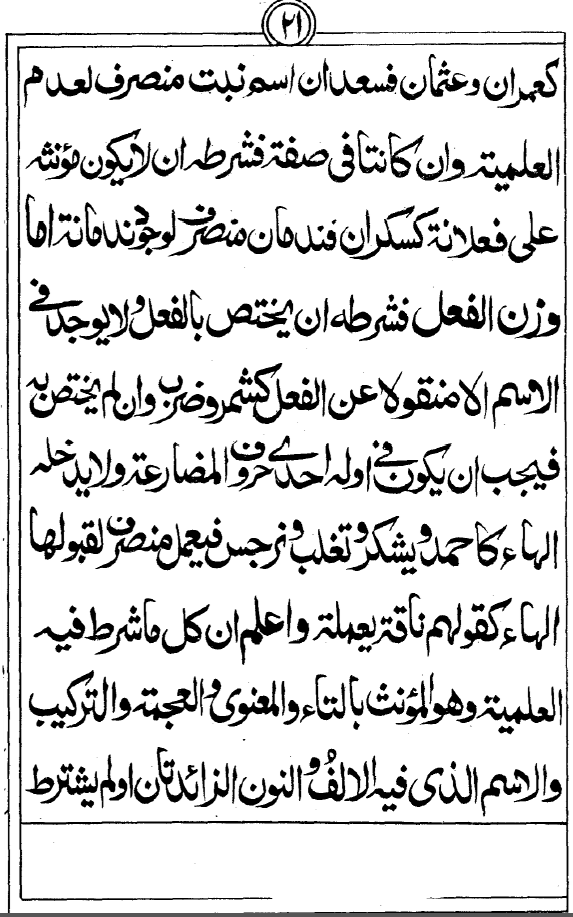 ٢١
كعمران وعثمان فسعدان اسم نبت منصرف لعدم
العلمية وان كانتا فى صفة فشرطه ان لا يكون مؤنثه
على فعلانة كسكران فندمان منصرف لوجود ندمانة اما
وزن الفعل فشرطه ان يختص بالفعل ولا يوجد فى
الاسم الا منقولا عن الفعل كشمر وضرب وان لم يختص به
فيجب ان يكون فى اوله احدى حروف المضارعة ولا يدخله
الهاء كاحمد ويشكر وتغلب ونرجس فيعمل منصرف لقبولها
الهاء كقولهم ناقة يعملة واعلم ان كل ما شرط فيه
العلمية وهو المؤنث بالتاء والمعنوى والعجمة والتركيب
والاسم الذى فيه الالف والنون الزائدتان اولم يشترط